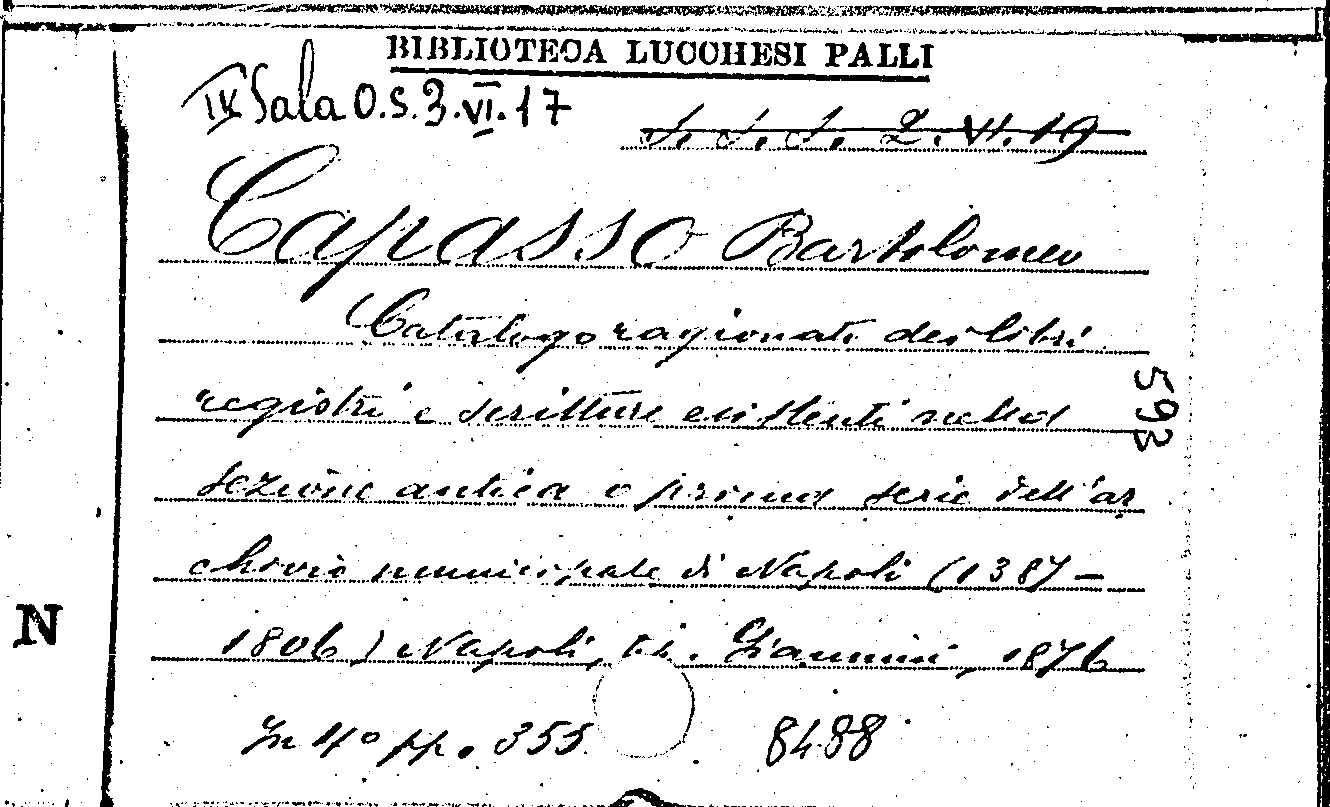 BIBLIOTECA LUCCHESI PALLI
IX Sala O.S.3.VI.17
S. S. S. 2. VI. 19
Capasso Bartolomeo
Catalogo ragionato dei libri
registri e scritture esistenti nella
593
sezione antica o prima serie dell'ar
chivio municipale di Napoli (1387-
N
1806) Napoli, tip. Giannini, 1876
In 4° pp. 355
8488